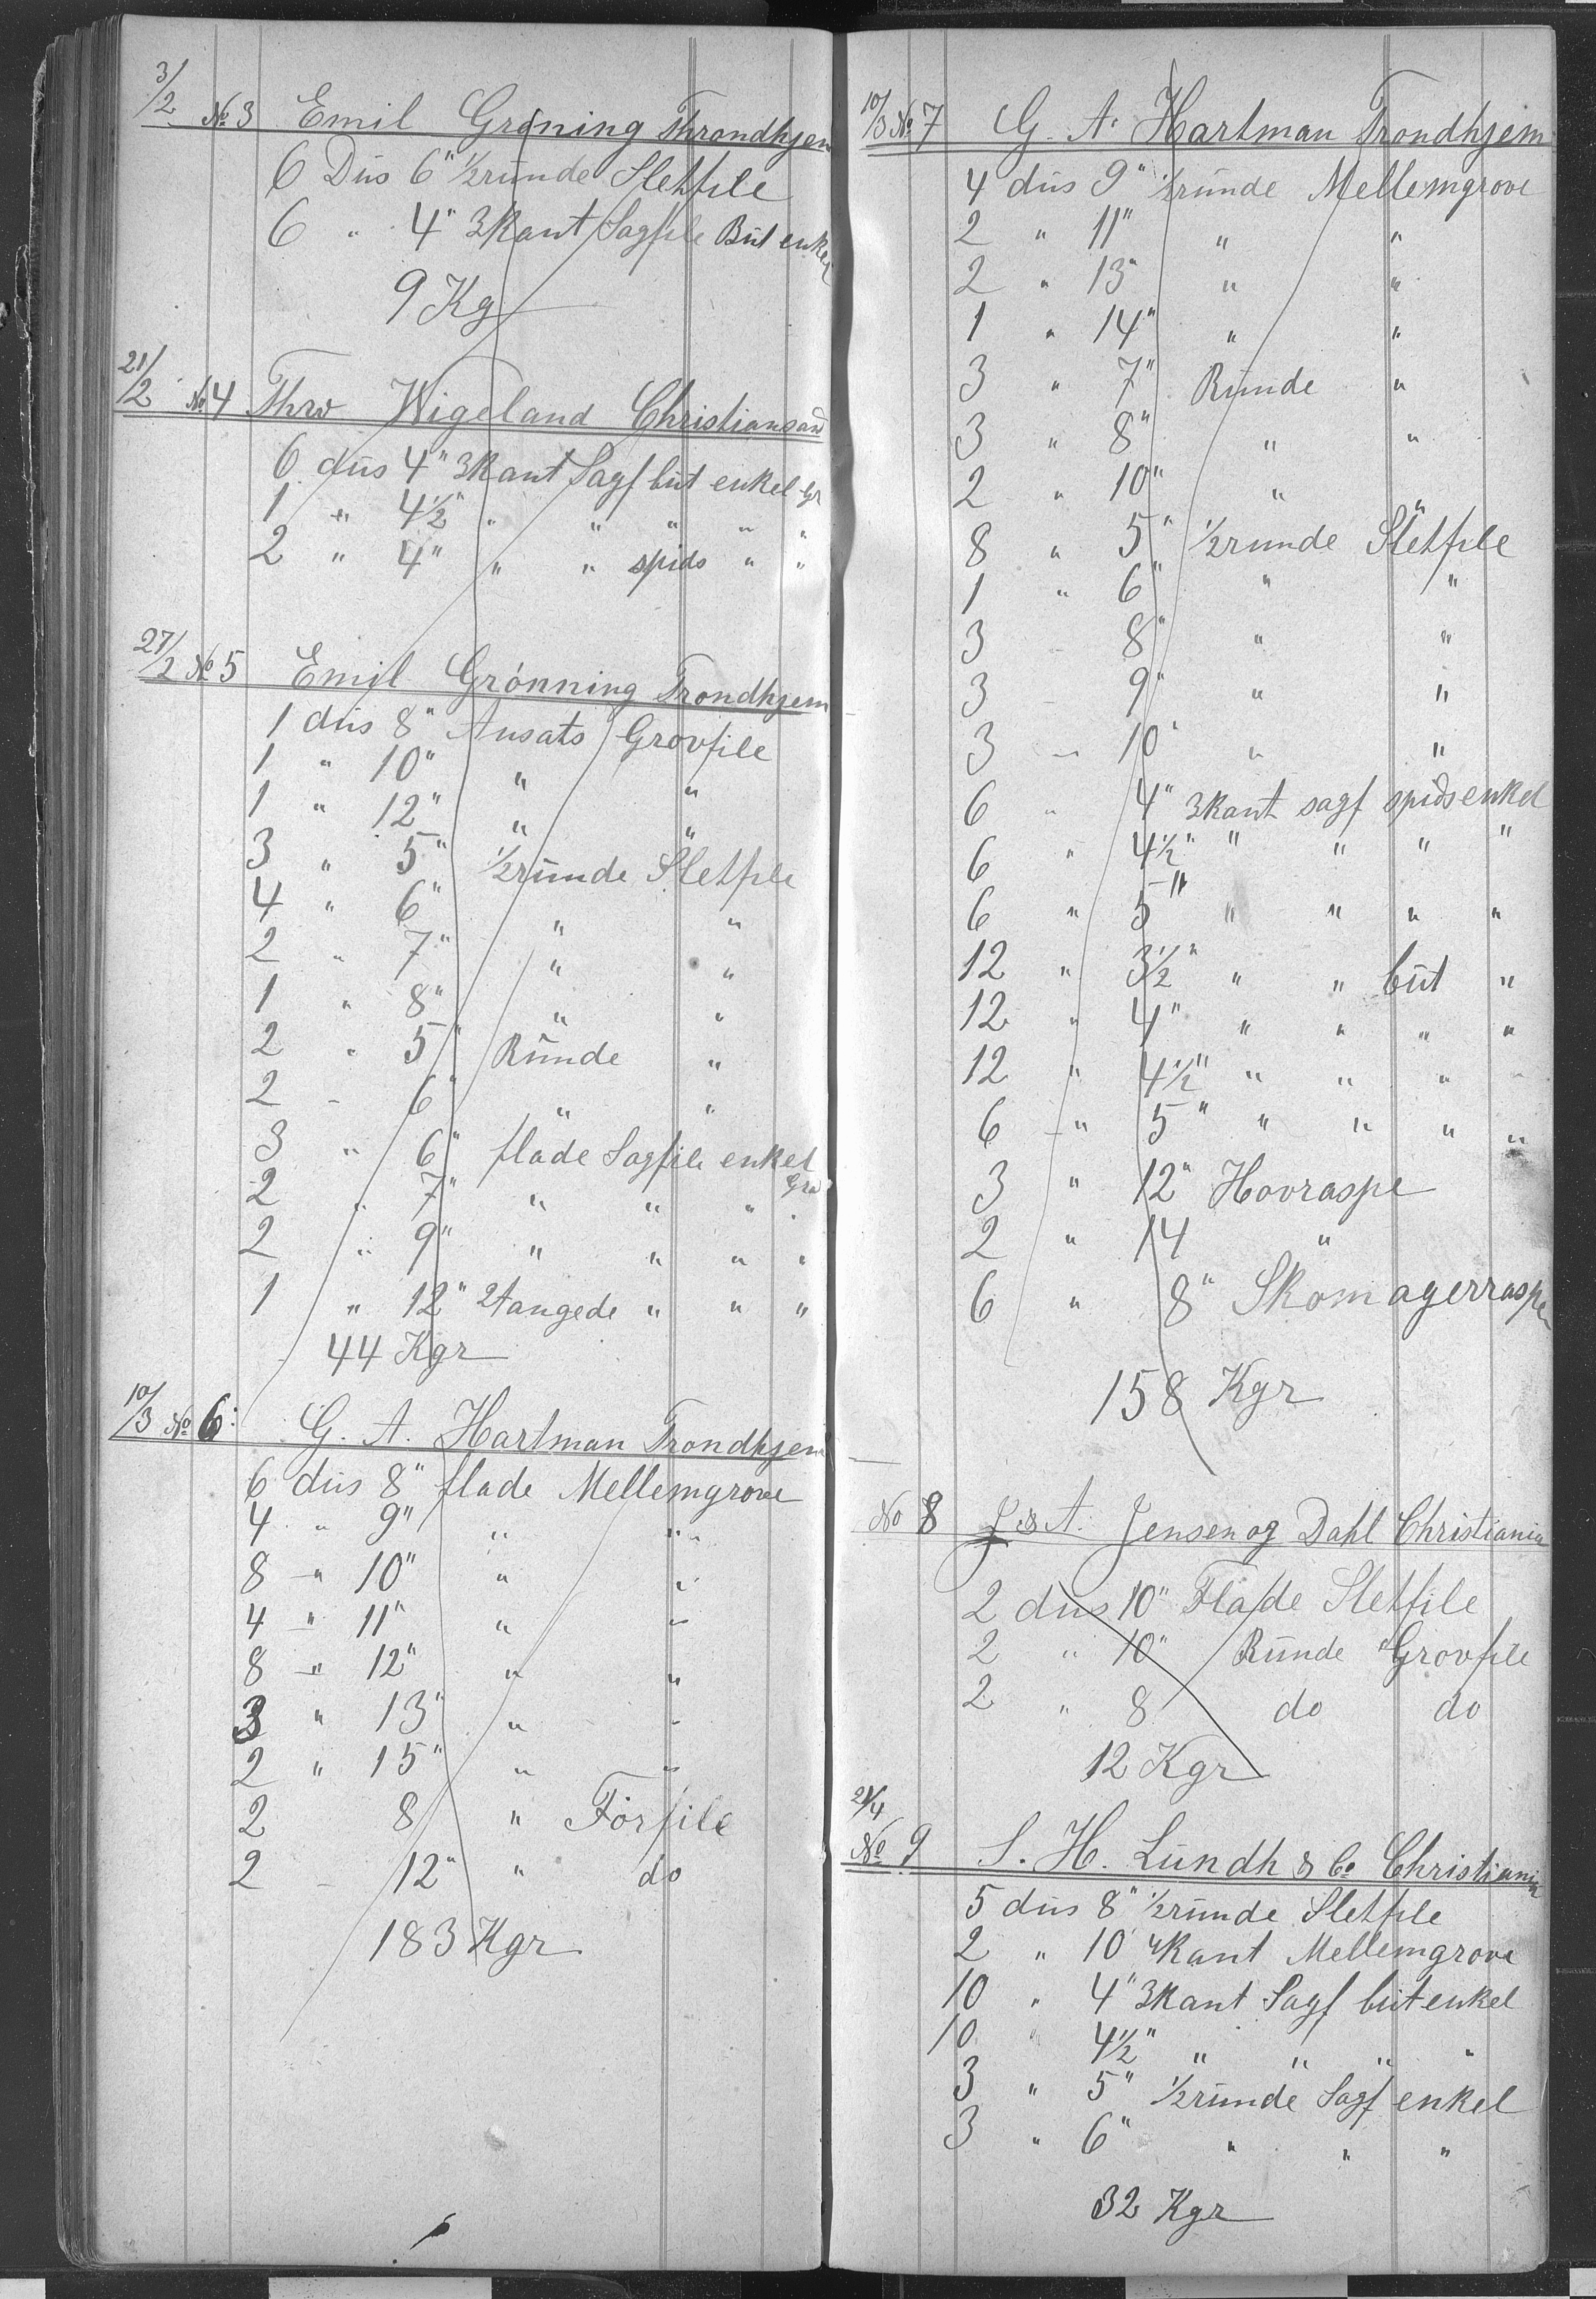 3/2 No 3 Emil Grøning Throndhjem
6 Dus 6" 1/2runde Sletfile
6 " 4" 3kant Sagfile But enkel
9 Kg
21/2 No 4 Thrv Wigeland Christiansand
6 dus 4" 3kant Sagf but enkel Gr
1 " 4 1/2" " " " " "
2 " 4" " " spids " "
27/2 No 5 Emil Grønning Trondhjem
1 dus 8" Ansats Grovfile
1 " 10" " "
1 " 12" " "
3 " 5" 1/2runde Sletfile
4 " 6" " "
2 " 7" " "
1 " 8" " "
2 " 5" Runde "
2 - 6" " "
3 " 6" flade Sagfile enkel
Grad
2 " 7" " " " "
2 " 9" " " " "
1 " 12" 2tangede " " "
44 Kgr
10/3 No 6 G. A. Hartman Trondhjem
6 dus 8" flade Mellemgrove
4 " 9" " "
8 " 10" " "
4 " 11" " "
8 " 12" " "
3 " 13" " "
2 " 15" " "
2 8 " Forfile
2 - 12" " do
183 Kgr
10/3 No 7 G. A. Hartman Trondhjem
4 dus 9" 1/2runde Mellemgrove
2 " 11" " "
2 " 13" " "
1 " 14" " "
3 " 7" Runde "
3 " 8" " "
2 " 10" " "
8 " 5" 1/2runde Sletfile
1 " 6" " "
3 - 8" " "
3 - 9" " "
3 - 10" " "
6 " 4" 3kant sagf spids enkel
6 " 4 1/2" " " " "
6 " 5" " " " "
12 " 3 1/2" " " but "
12 " 4" " " " "
12 " 4 1/2" " " " "
6 " 5" " " " "
3 " 12" Hovraspe
2 " 14 "
6 " 8" Skomagerraspe
158 Kgr
No 8 J. & A. Jensen og Dahl Christiania
2 dus 10" Flade Sletfile
2 " 10" Runde Grovfile
2 " 8 do do
12 Kgr
21/4
No 9 S. H. Lundh & Co Christiania
5 dus 8" 1/2runde Sletfile
2 " 10" 4kant Mellemgrove
10 " 4" 3kant Sagf but enkel
10 " 4 1/2" " " " "
3 " 5" 1/2runde Sagf enkel
3 " 6" " " "
32 Kgr